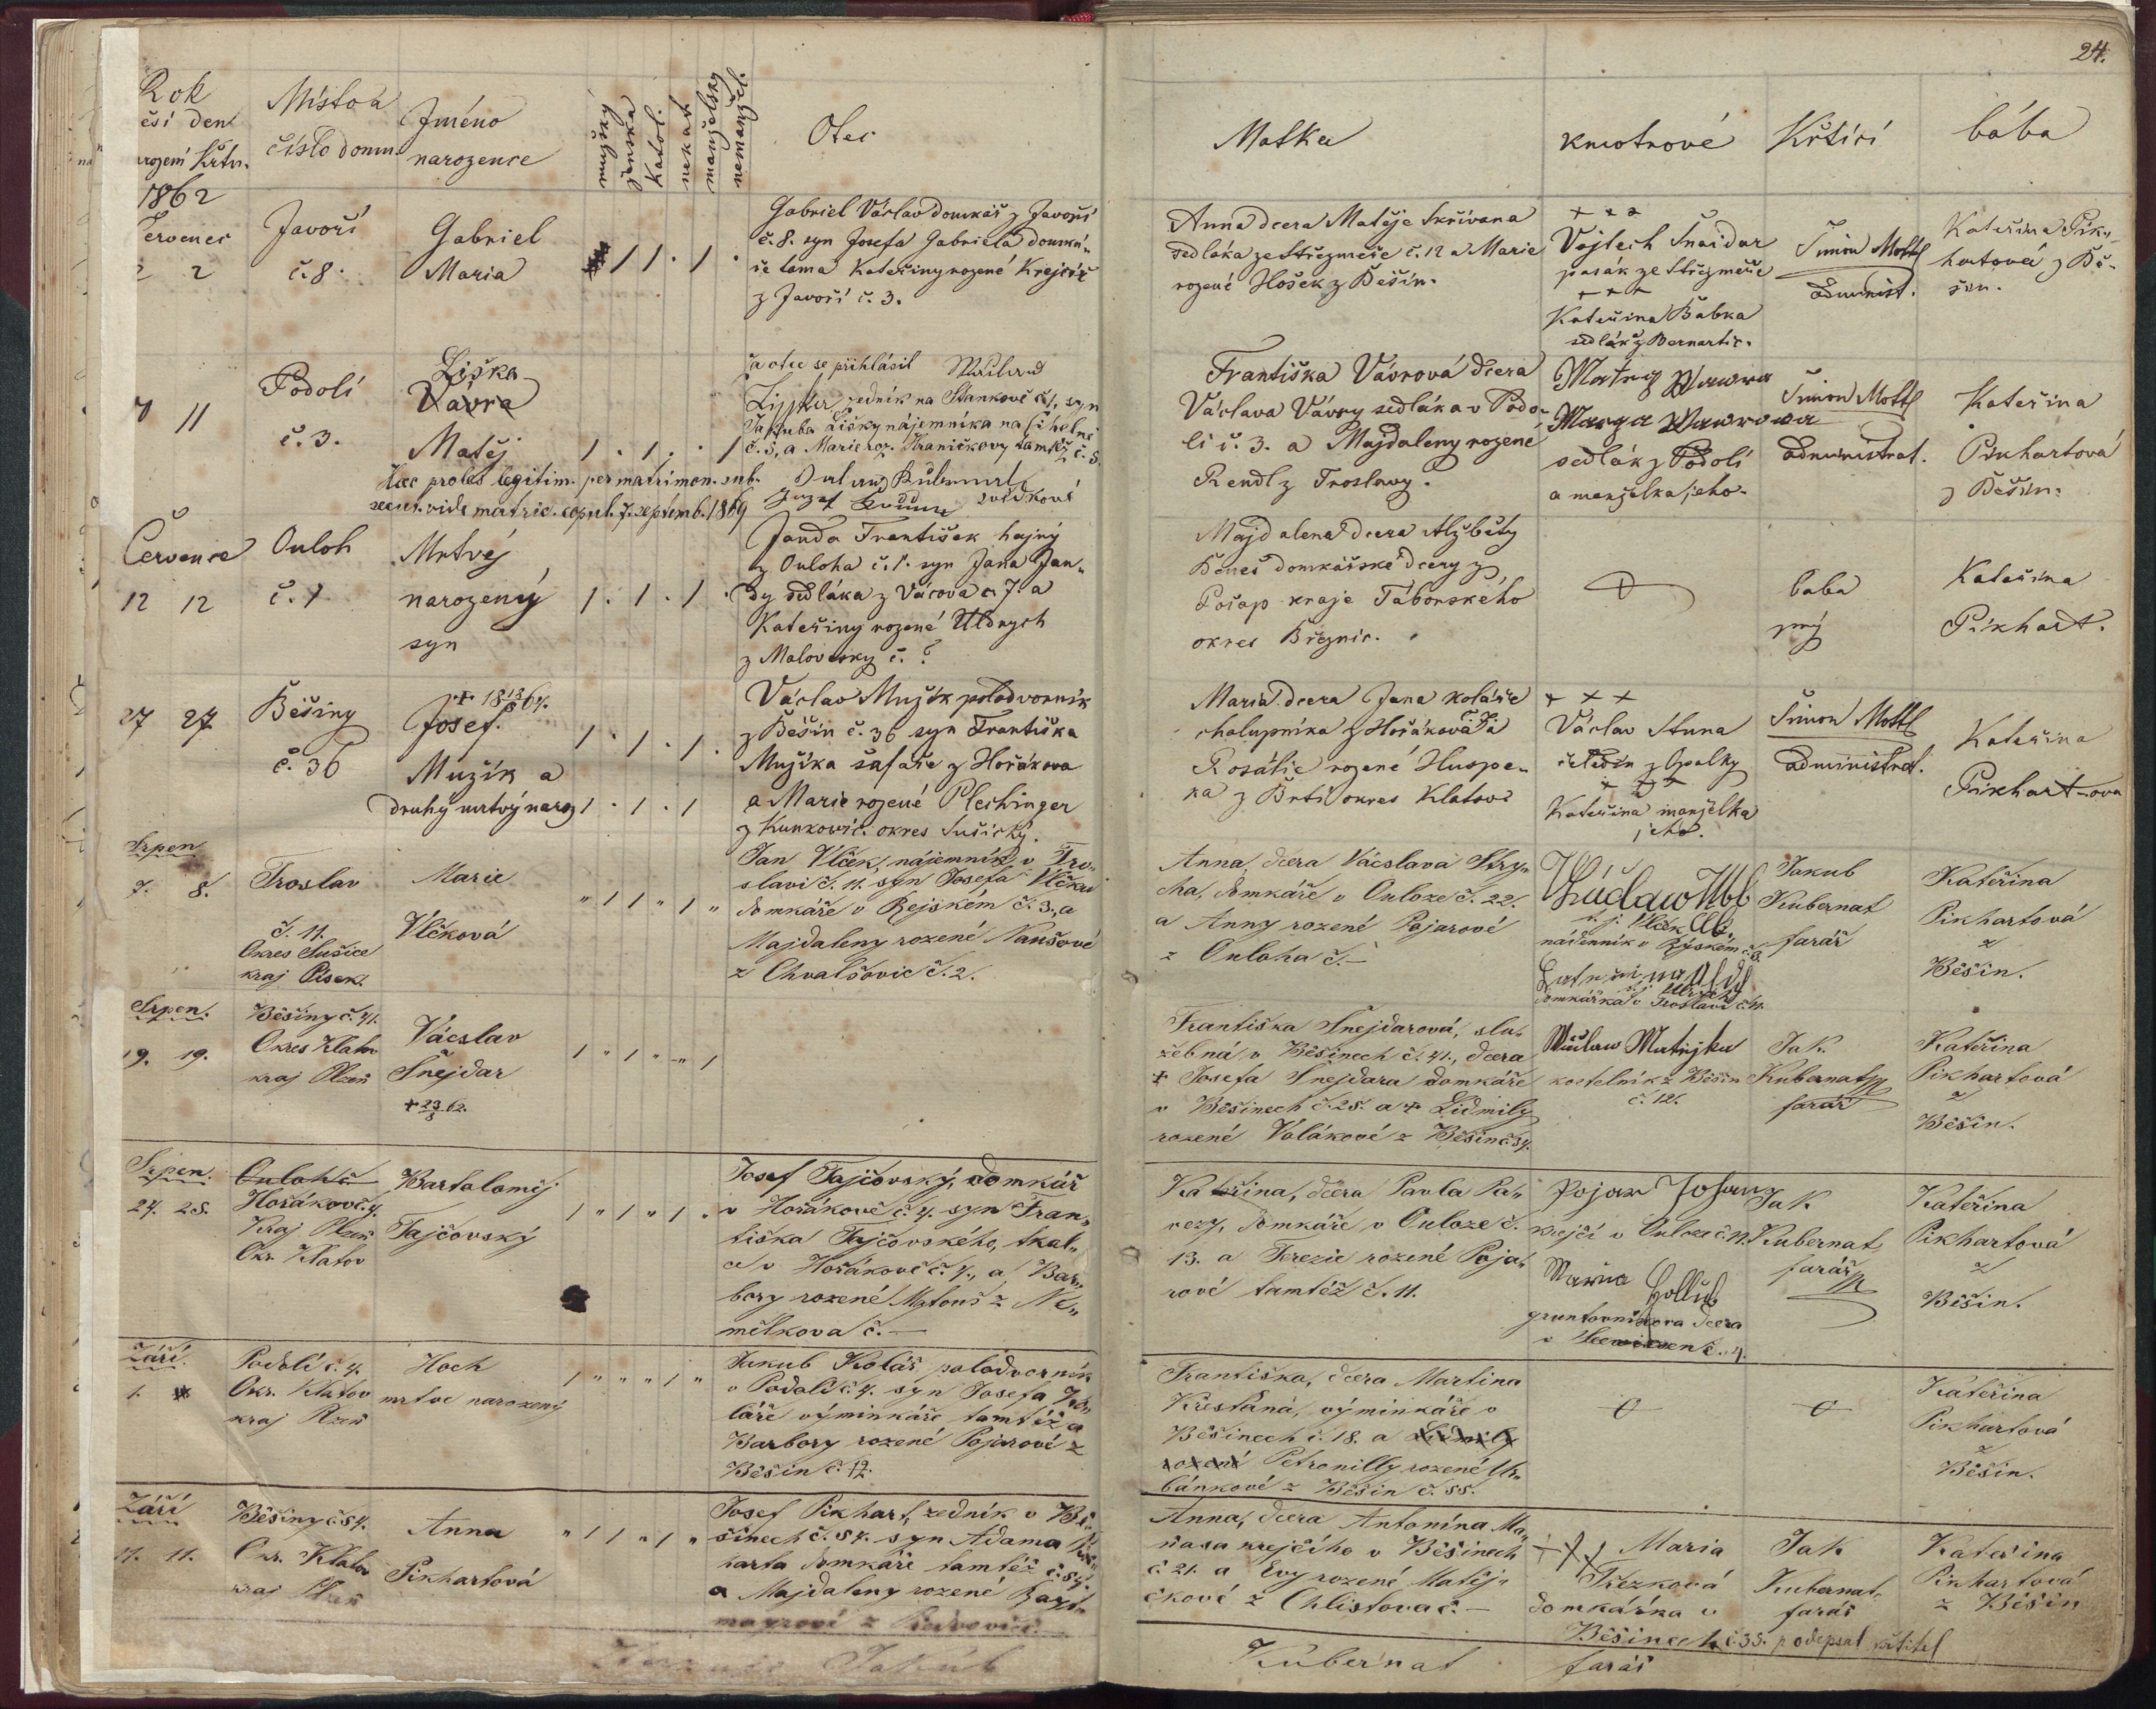 24.
Rok
ěsí den
rození křtu.
Místo a
číslo domu
Jméno
narozence
mužský
ženská
Katol.
nekat.
manželský
nemanžel.
Otec
Matka
kmotrové
Křtící
bába
1862
Červenec
2 2
Javoří
č. 8.
Gabriel
Maria
Gabriel Václav domkář z Javoří
č. 8. syn Josefa Gabriela domká-
ře tama Kateřiny rozené Krejčíř
z Javoří č. 3.
Anna dcera Matěje Skřivana
sedláka ze Střezměře č. 12 a Marie
rozené Hošek z Běšin.
+ + +
Vojtech Šnaidar
pasák ze Střezměře
+ + +
Kateřina Babka
sedlák z Bernartic.
Šimon Mottl
administ.
Kateřina Pik-
hartová z Bě-
šin.
7 11
Podolí
č. 3.
Liška
Vavra
Matěj
za otce se přihlásil
zedník na Stankově č. 1, syn
Jakuba Lišky nájemníka na Cihelně
č. 3, a Marie roz. Hraničkovy tamtéž č. 8.
Haec proles legitim. per matrimon. sub-
secut. vide matric. copul. 7. septemb. 1869
svědkové
Františka Vávrová dcera
Václava Vávry sedláka v Podo-
lí č. 3. a Majdaleny rozené
Rendl z Troslavy.
Mateg Wawra
Marya Wawrowa
sedlák z Podolí
a manželka jeho.
Šimon Mottl
administrat.
Kateřina
Pikhartová
z Běšin.
Července
12 12
Ouloh
č. 1
Mrtvěj
narozený
syn
Janda František hajný
z Ouloha č. 1. syn Jana Jan-
dy sedláka z Vácova č. 7. a
Kateřiny rozené Uldrych
z Malovesky č. ?
Majdalena dcera Alžběty
Beneš domkářské dcery z
Počap kraje Táborského
okres Březnic.
baba
prý
Kateřina
Pikhart.
27 27
Běšiny
č. 36
Josef.
Mužík a
druhý mrtvý naroz
Václav Mužík polodvorník
z Běšin č. 36 syn Františka
Mužíka šafáře z Hořákova
a Marie rozené Plechinger
z Kunkovic. okres Sušický.
Maria dcera Jana Koláře
chalupníka z Hořákova č. 7. a
Rosálie rozené Huspe-
ka z Brtí okres Klatov
+ + +
Václav Stuna
čeledín z Opalky
+ + +
Kateřina manželka
jeho.
Šimon Mottl
administrat.
Kateřina
Pikhart-ova
Srpen
7. 8.
Troslav
č. 11.
Okres Sušice
kraj Písek.
Marie
Vlčková
Jan Vlček, nájemník v Tro-
slavi č. 11. syn Josefa Vlčka
domkáře v Rejském č. 3., a
Majdaleny rozené Naušové
z Chvalšovic č. 2.
Anna, dcera Václava Stry-
cha, domkáře v Ouloze č. 22.
a Anny rozené Pojarové
z Ouloha č. —
t. j. Vlček
nádenník v Rýském č. 3.
domkářka v Troslavi č. 11.
Jakub
Kubernat
farář
Kateřina
Pikhartová
z
Běšin.
Srpen.
19. 19.
Běšiny č. 41.
Okres Klatov
kraj Plzeň
Vácslav
Šnejdar
+ 23/8 62.
Františka Šnejdarová, slu-
žebná v Běšinech č. 41., dcera
+ Josefa Šnejdara domkáře
v Běšinech č. 28. a + Lidmily
rozené Volákové z Běšin č. 34.
Wáclaw Matějka
kostelník z Běšin
č. 12.
Jak.
Kubernat
farář
Kateřina
Pikhartová
z
Běšin.
Srpen.
24. 25.
Ouloh č
Hořákov č. 4.
Kraj Plzeň
Okr. Klatov
Bartoloměj
Tajčovský
Josef Tajčovský, domkář
v Hořákově č. 4. syn Fran-
tiška Tajčovského, tkal-
ce v Hořákově č. 4., a Bar-
bory rozené Matouš z Ne-
mělkova č. —
Kateřina, dcera Pavla Pa-
rezy, domkáře v Ouloze č.
13. a Terezie rozené Poja-
rové tamtéž č. 11.
Pojar Johan
krejčí v Ouloze č. 11.
Maria Hollub
gruntovníkova dcera
Jak
Kubernat
farář
Kateřina
Pikhartová
z
Běšin.
Září.
1.
Podolí č. 4.
Okr. Klatov
kraj Plzeň
Hoch
mrtvě narozený
Jakub Kolář, polodvorník
v Podolí č. 4. syn Josefa Ko-
láře výminkáře tamtéž a
Barbory rozené Pojarové z
Běšin č. 12.
Františka, dcera Martina
Křesťana, výminkáře v
Běšinech č. 18. a Lidmily
rozené Petronilly rozené Ur-
bánkové z Běšin č. 55.
Kateřina
Pikhartová
z
Běšin.
Září
11. 11.
Běšiny č 54.
Okr. Klatov
kraj Plzeň
Anna
Pikhartová
Josef Pikhart, zedník v Bě-
šinech č. 54. syn Adama Pik-
harta domkáře tamtéž č. 54.
a Majdaleny rozené
Anna, dcera Antonína Ma-
ňasa krejčího v Běšinech
č 21. a Evy rozené Matěj-
čkové z Chlistova č. —
+++ Maria
Řezková
domkářka v
Běšinech č. 35. podepsal křtitel
Jak
Kubernat
farář
Kateřina
Pikhartová
z Běšin
Jakub
Kubernat farář